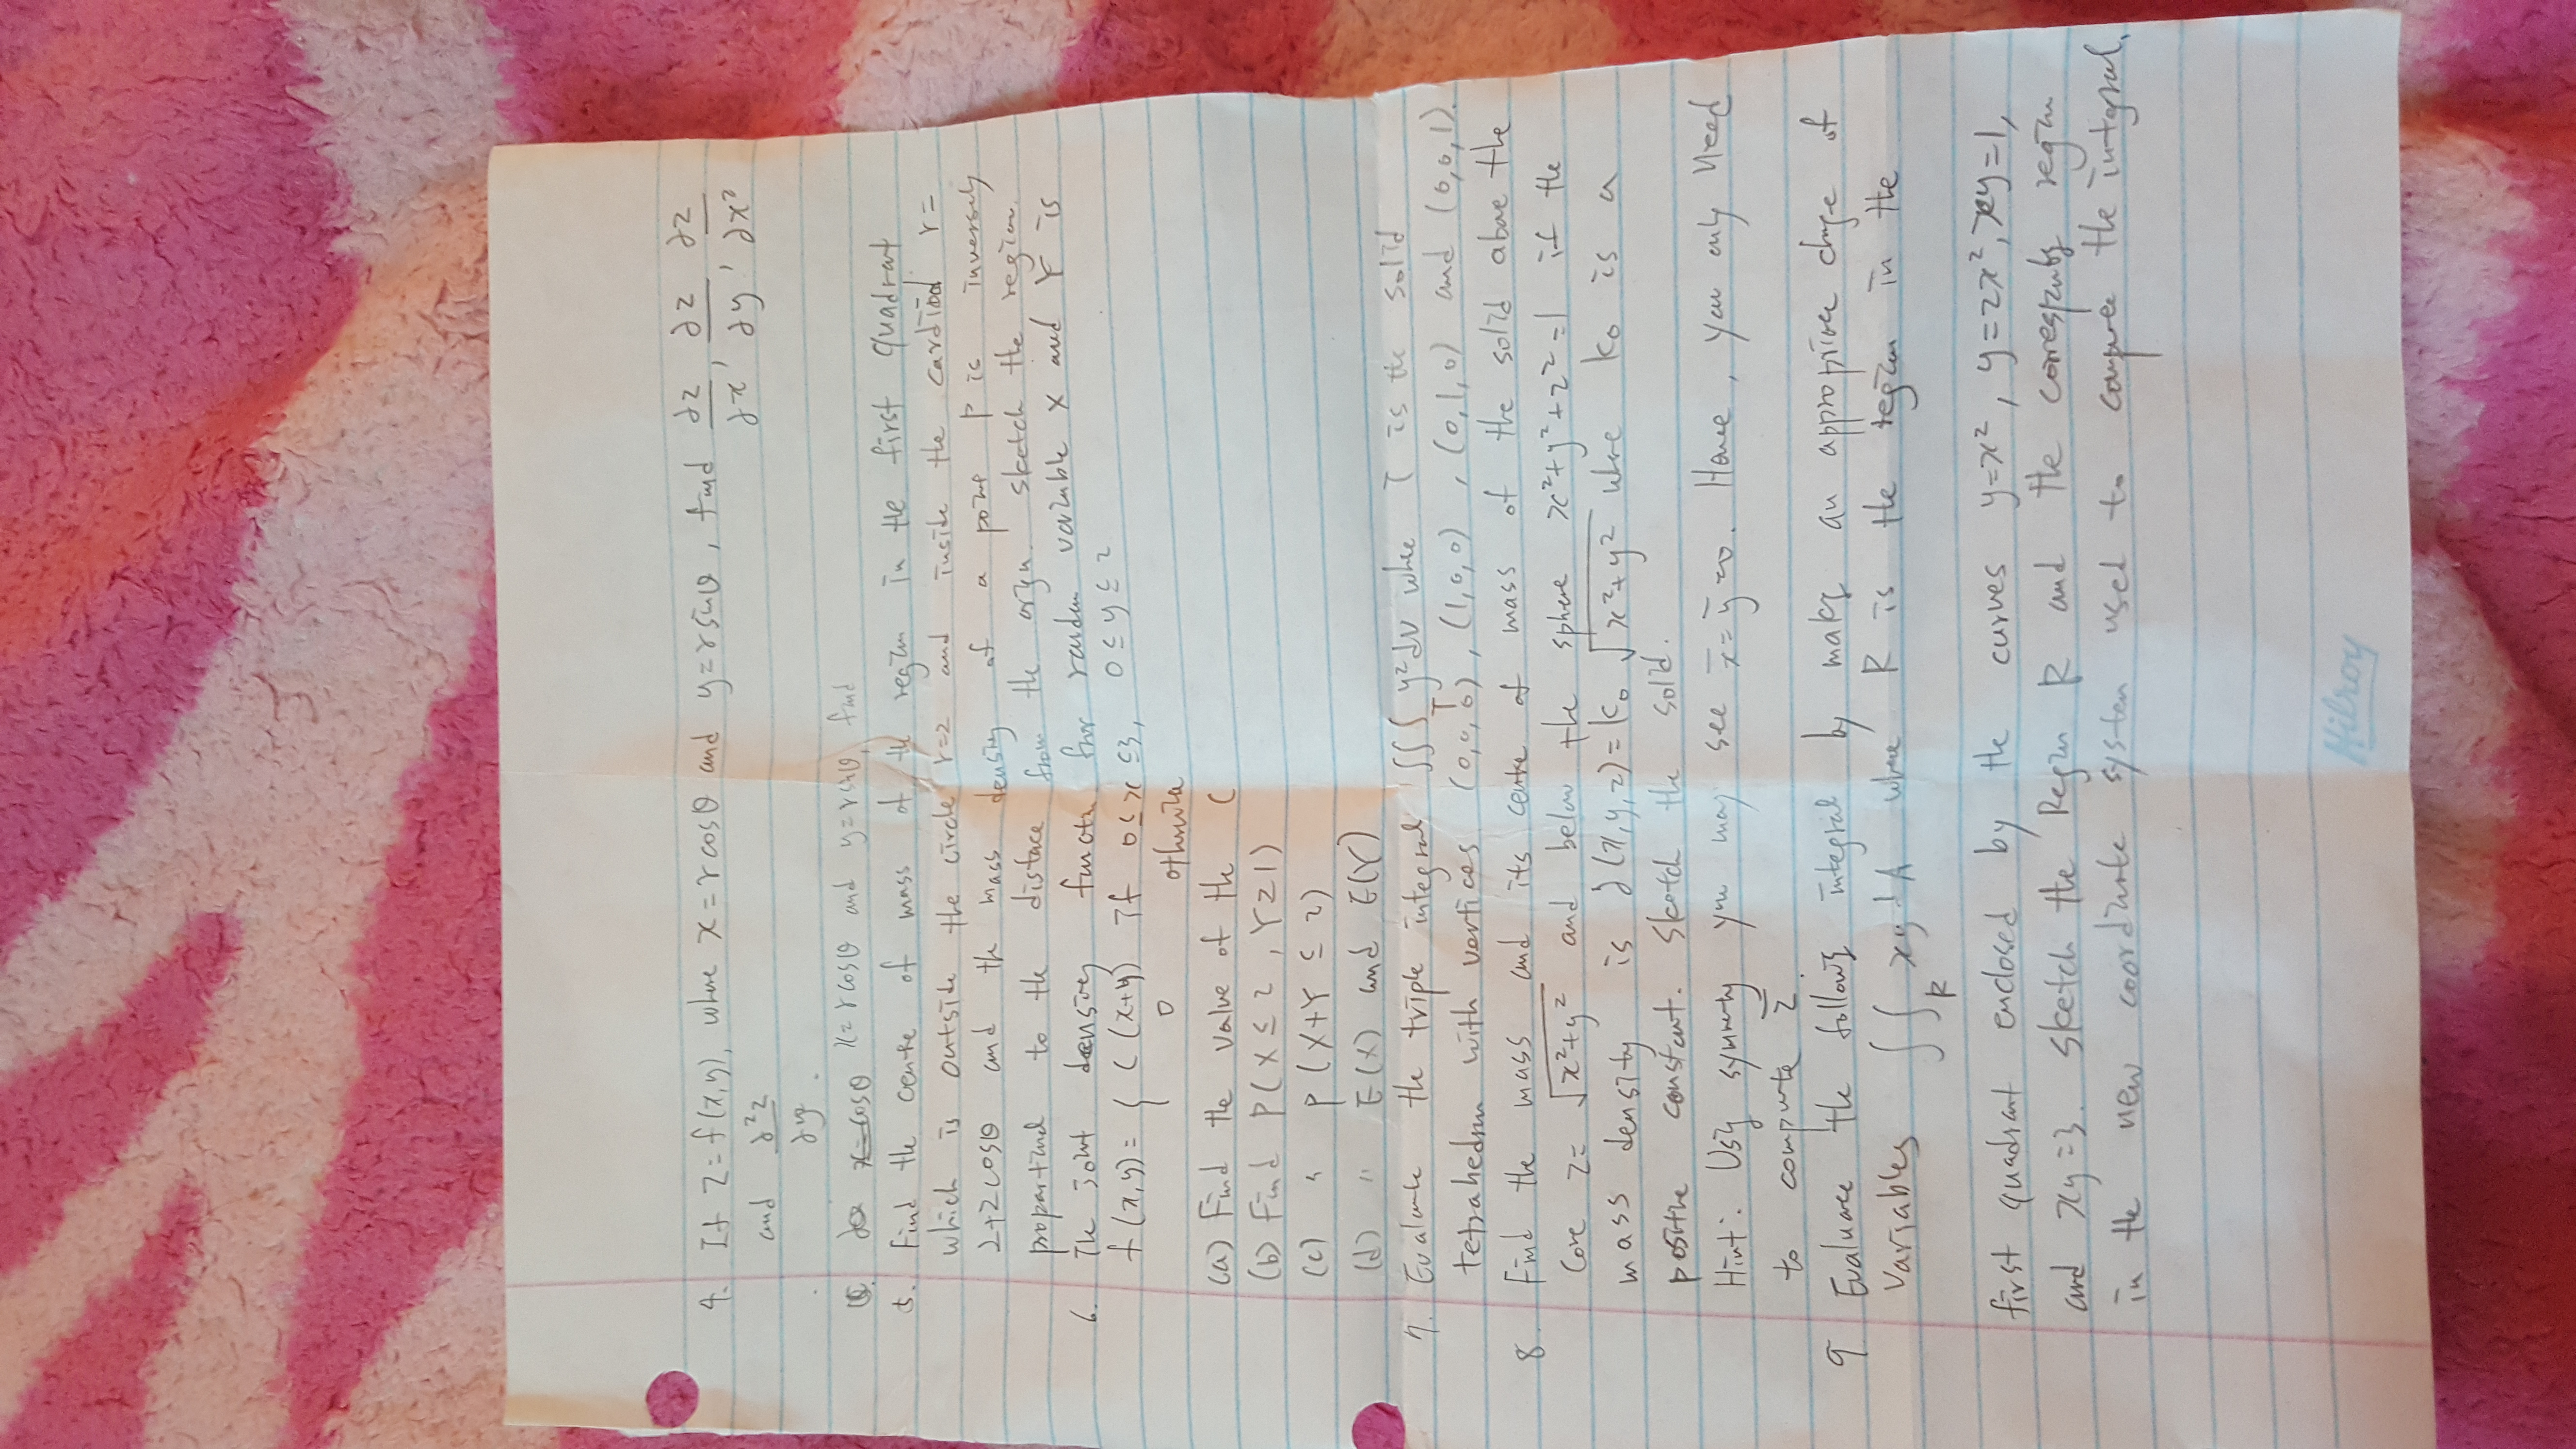 4. If z = f(x,y), where x = r cosθ and y = r sinθ, find ∂z/∂x, ∂z/∂y, ∂z/∂x²
and ∂²z/∂y².
x = cosθ x = r cosθ and y = r sinθ, find
5. Find the centre of mass of the region in the first quadrant
which is outside the circle r=2 and inside the cardiod r =
2+2cosθ and the mass density of a point P is inversely
proportinal to the distace from the orgn. sketch the region.
6. The joint density functn for random variable X and Y is
f(x,y) = { C (x+y) if 0 ≤ x ≤ 3, 0 ≤ y ≤ 2
0 otherwise
(a) Find the value of the C
(b) Find P(X ≤ 2, Y ≥ 1)
(c) " P(X+Y ≤ 2)
(d) " E(X) and E(Y)
7. Evaluate the triple integral ∫∫∫_T y² dv where T is the solid
tetrahedron with vertices (0,0,0), (1,0,0), (0,1,0) and (0,0,1).
8. Find the mass and its centre of mass of the solid above the
cone z = √(x²+y²) and below the sphere x²+y²+z²=1 if the
mass density is δ(x,y,z) = k₀ √(x²+y²) where k₀ is a
positive constant. Sketch the solid.
Hint: Using symmetry you may see x̄ = ȳ = 0. Hence, you only need
to compute z̄.
9 Evaluate the following integral by making an appropriate change of
variables ∫∫_R xy dA where R is the region in the
first quadrant enclosed by the curves y=x², y=2x², xy=1,
and xy=3. Sketch the Region R and the corresponding region
in the new coordinate system used to compute the integral.
Hilroy